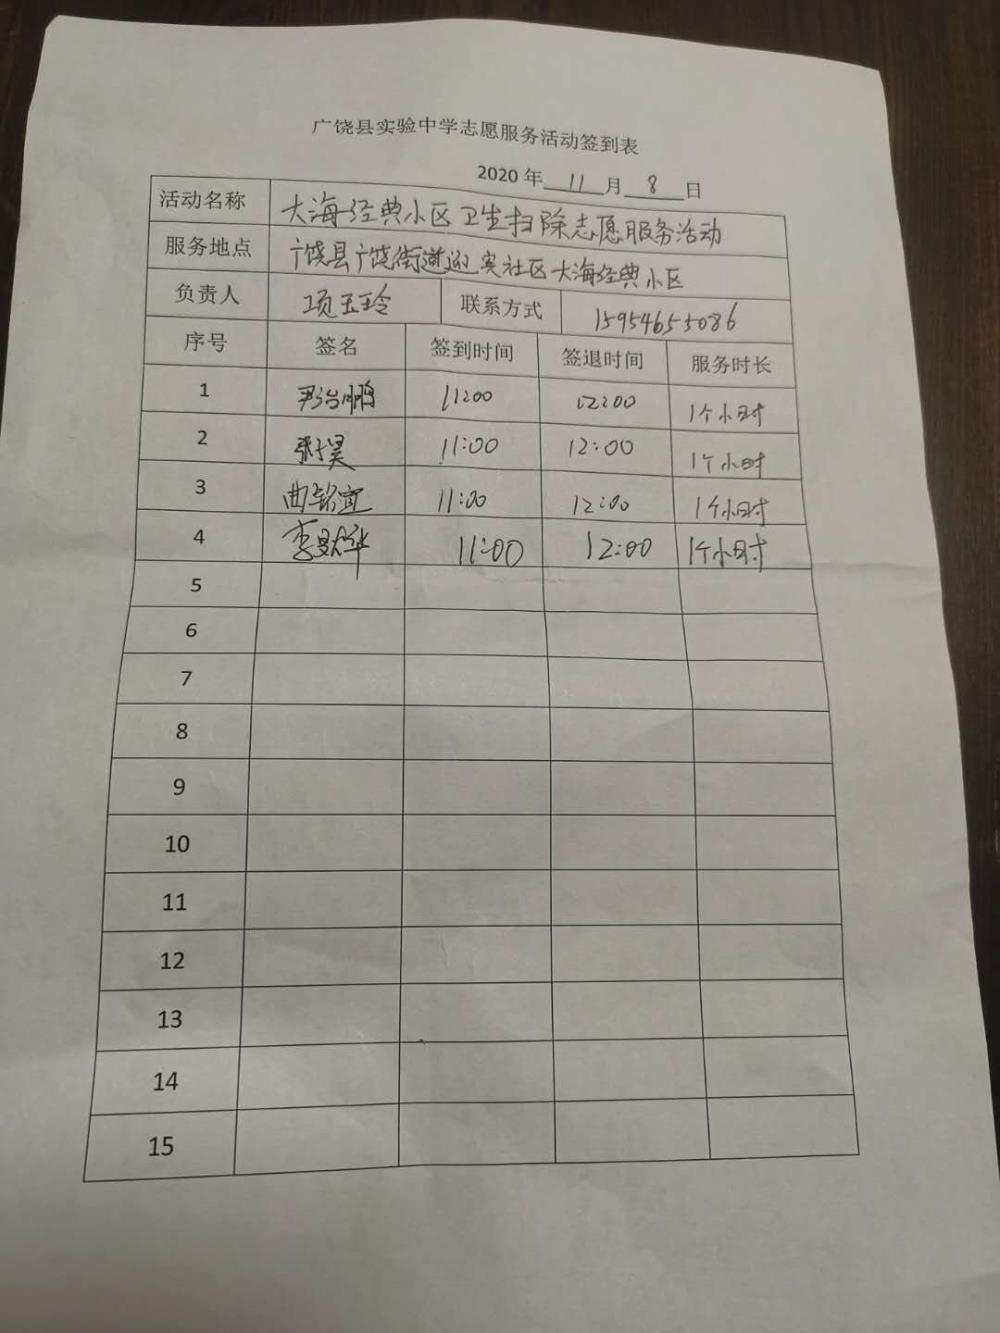 广饶县实验中学志愿服务活动签到表
2020 年 11 月 8 日
活动名称 大海经典小区卫生扫除志愿服务活动
服务地点 广饶县广饶街道迎宾社区大海经典小区
负责人 项玉玲 联系方式 15954655086
序号 签名 签到时间 签退时间 服务时长
1 尹治鹏 11:00 12:00 1个小时
2 11:00 12:00 1个小时
3 曲铭宜 11:00 12:00 1个小时
4 11:00 12:00 1个小时
5
6
7
8
9
10
11
12
13
14
15